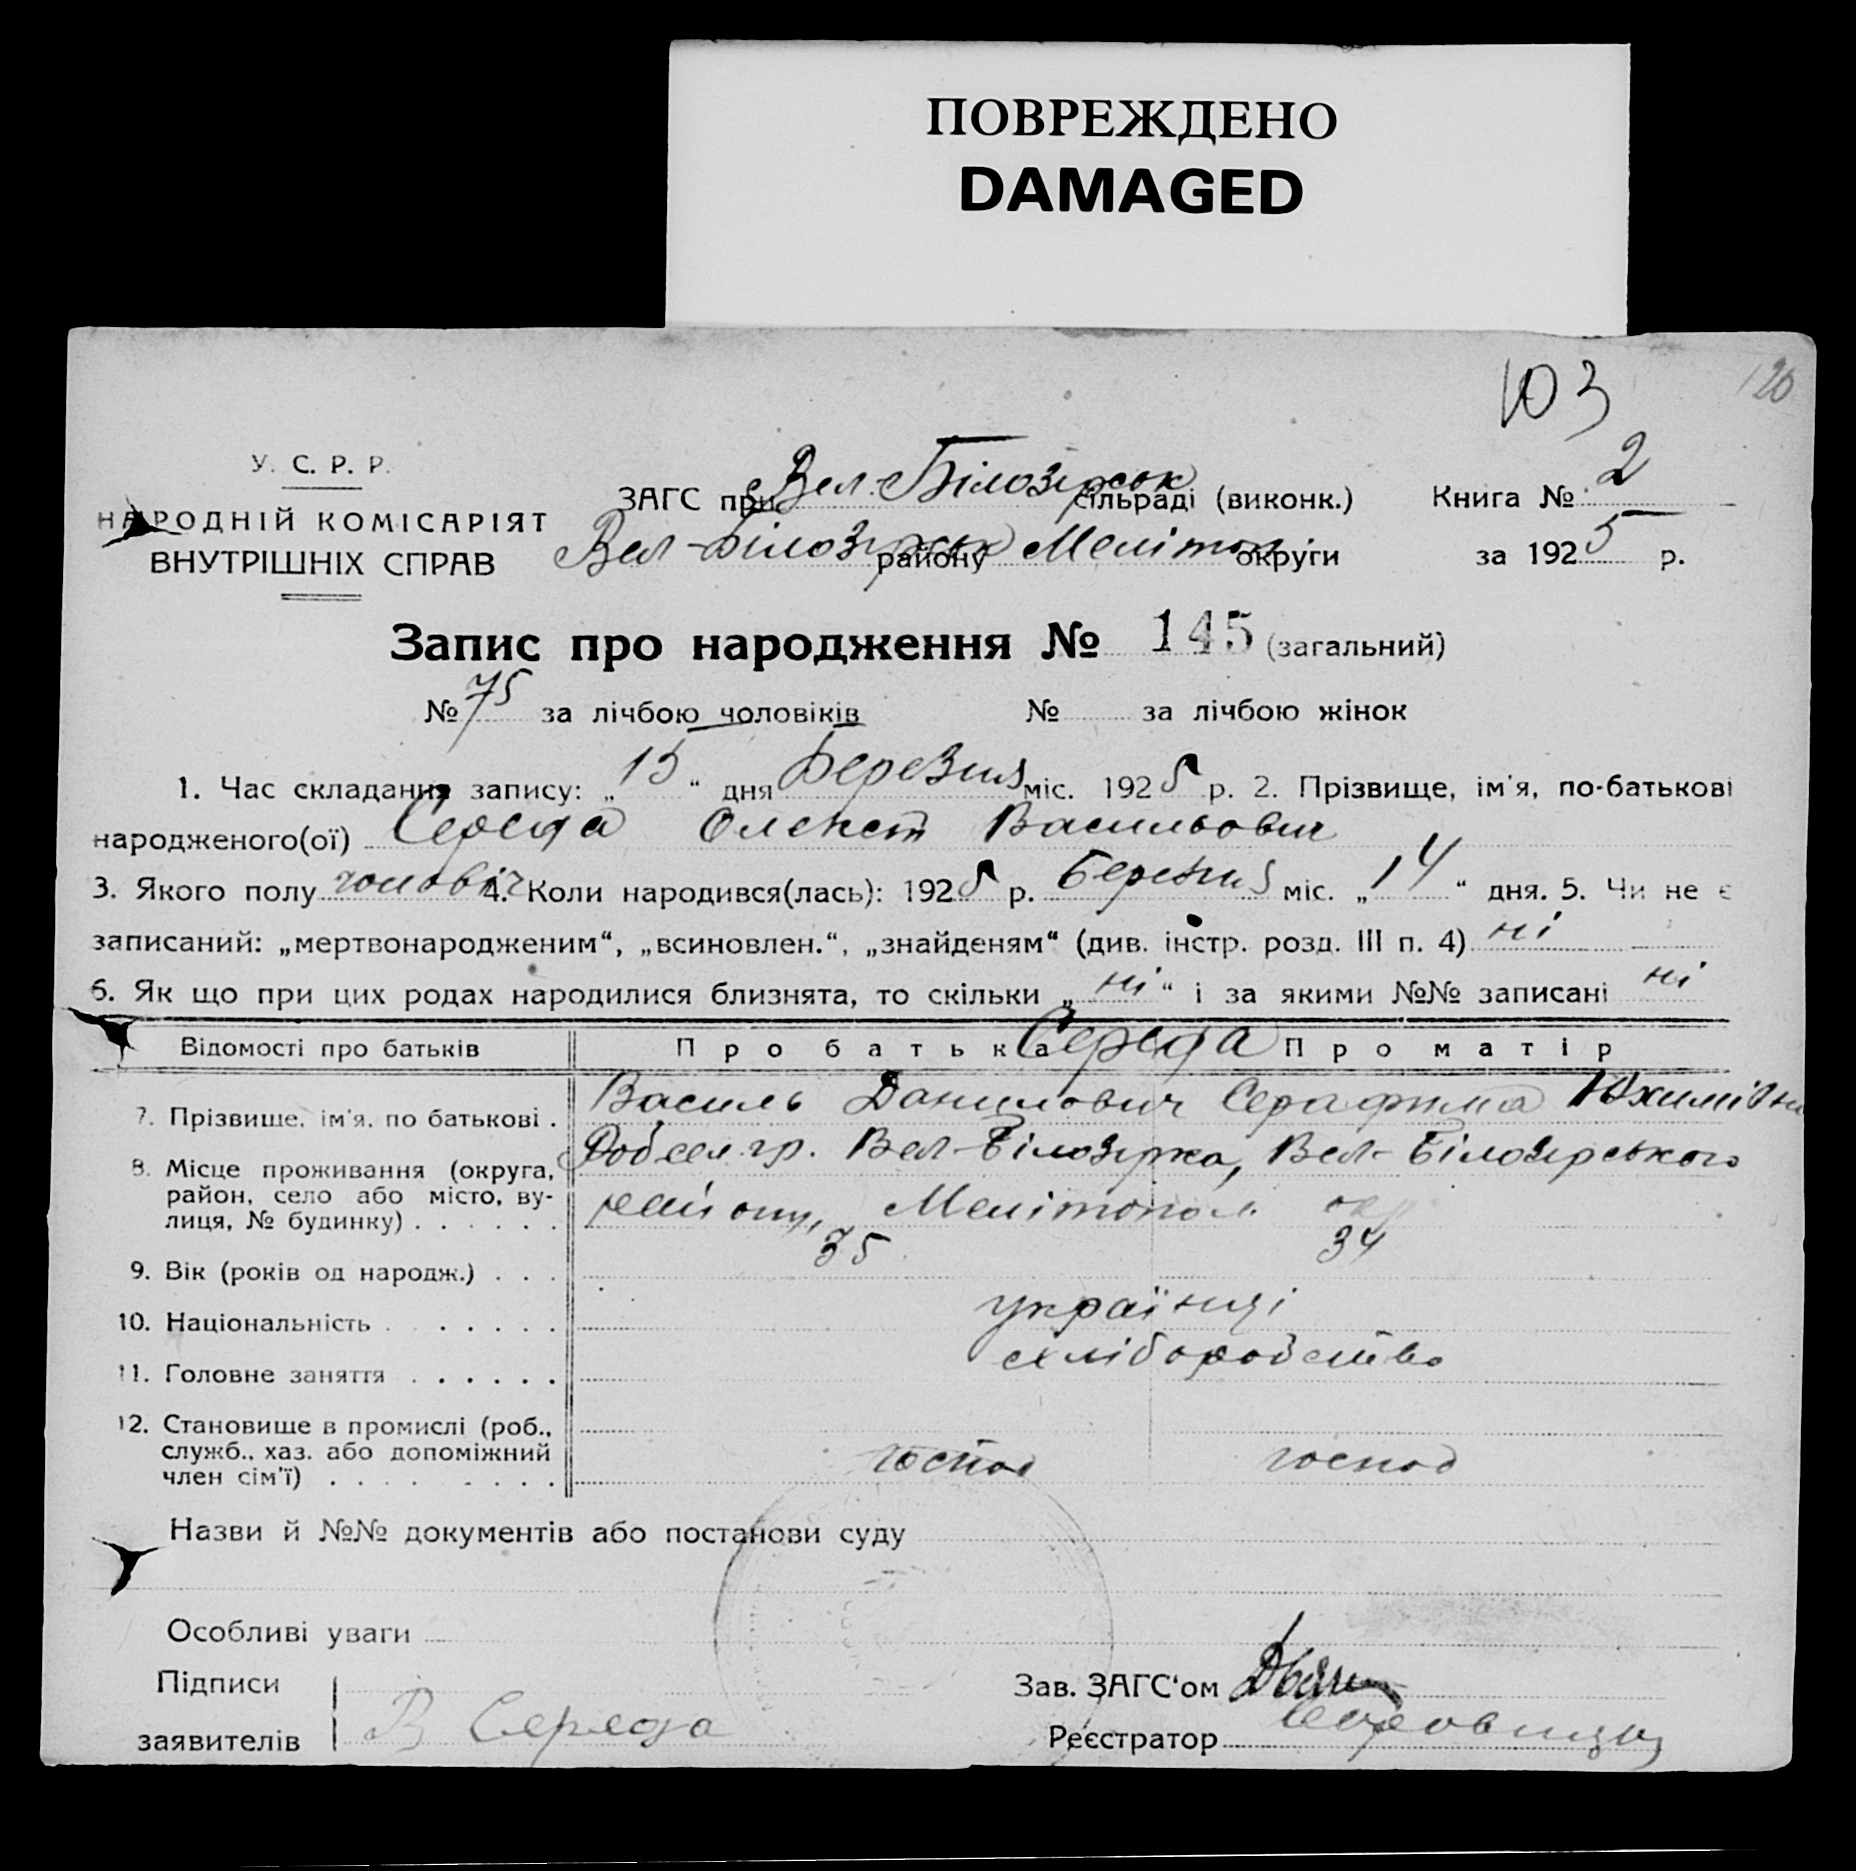 ПОВРЕЖДЕНО
DAMAGED
103
120
У. С. Р. Р.
НАРОДНІЙ КОМІСАРІЯТ
ВНУТРІШНІХ СПРАВ
ЗАГС при Вел. Білозірськ сільраді (виконк.) Книга № 2
Вел-Білозірськ району Мелітоп округи за 1925 р.
Запис про народження № 145 (загальний)
№ 75 за лічбою чоловіків № за лічбою жінок
1. Час складання запису: „15“ дня Березня міс. 1925 р. 2. Прізвище, ім'я, по-батькові
народженого(ої) Середа Олекст Васильович
3. Якого полу чоловіч 4. Коли народився(лась): 1925 р. Березня міс. „14“ дня. 5. Чи не є
записаний: „мертвонародженим“, „всиновлен.“, „знайденям“ (див. інстр. розд. III п. 4) ні
6. Як що при цих родах народилися близнята, то скільки „ні“ і за якими №№ записані ні
Відомості про батьків Про батька Середа Про матір
7. Прізвище, ім'я, по батькові . Василь Данилович Серафима Юхимівна
8. Місце проживання (округа, район, село або місто, ву-лиця, № будинку) . . . . . . гр. Вел-Білозірка, Вел-Білозірського
району, Мелітопол. окр
9. Вік (років од народж.) . . . 35 34
10. Національність . . . . . . українці
11. Головне заняття . . . . . . хліборобство
12. Становище в промислі (роб., служб., хаз. або допоміжний член сім'ї) . . . . . . . . господ господ
Назви й №№ документів або постанови суду
Особливі уваги
Підписи
заявителів В Середа
Зав. ЗАГС'ом
Реєстратор